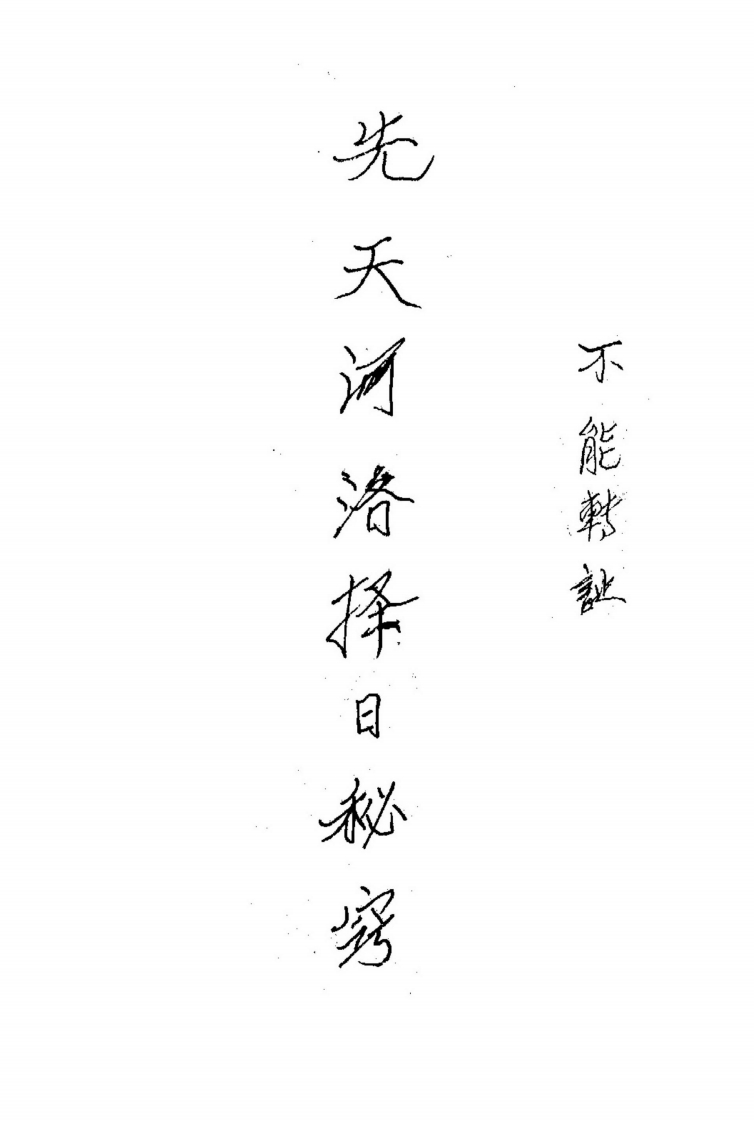 不能轉
先天河洛择日秘窍